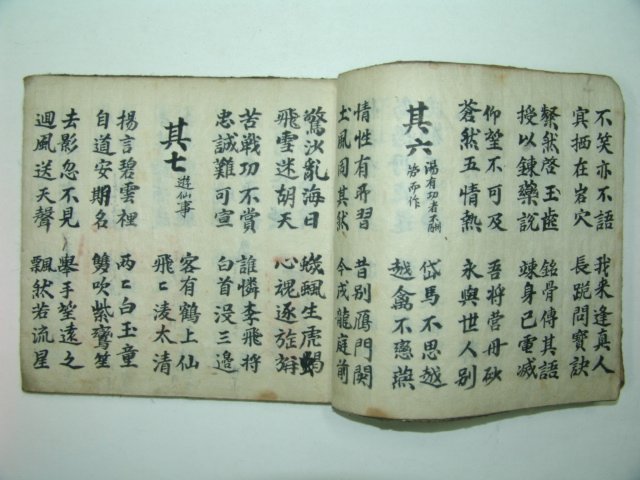 不笑亦不語
㝠栖在岩穴
我来逢真人
長跪問寳訣
粲然啓玉齒
授以鍊藥説
銘骨傳其語
竦身已電滅
仰望不可及
蒼然五情熱
吾将营丹砂
永與世人別
其六
湯有功者不酬
而作
岱馬不思越
越禽不恋燕
情性有所習
土風固其然
昔別鴈門関
今戍龍庭前
驚沙亂海日
飛雪迷胡天
蟣虱生虎鶡
心魂逐旌旃
苦戦功不賞
忠誠難可宣
誰憐李飛将
白首没三邉
其七
遊仙事
客有鶴上仙
飛〻凌太清
揚言碧雲裡
自道安期名
兩〻白玉童
雙吹紫鸞笙
去影忽不見
廻風送天聲
舉手笙遠之
飄然若流星